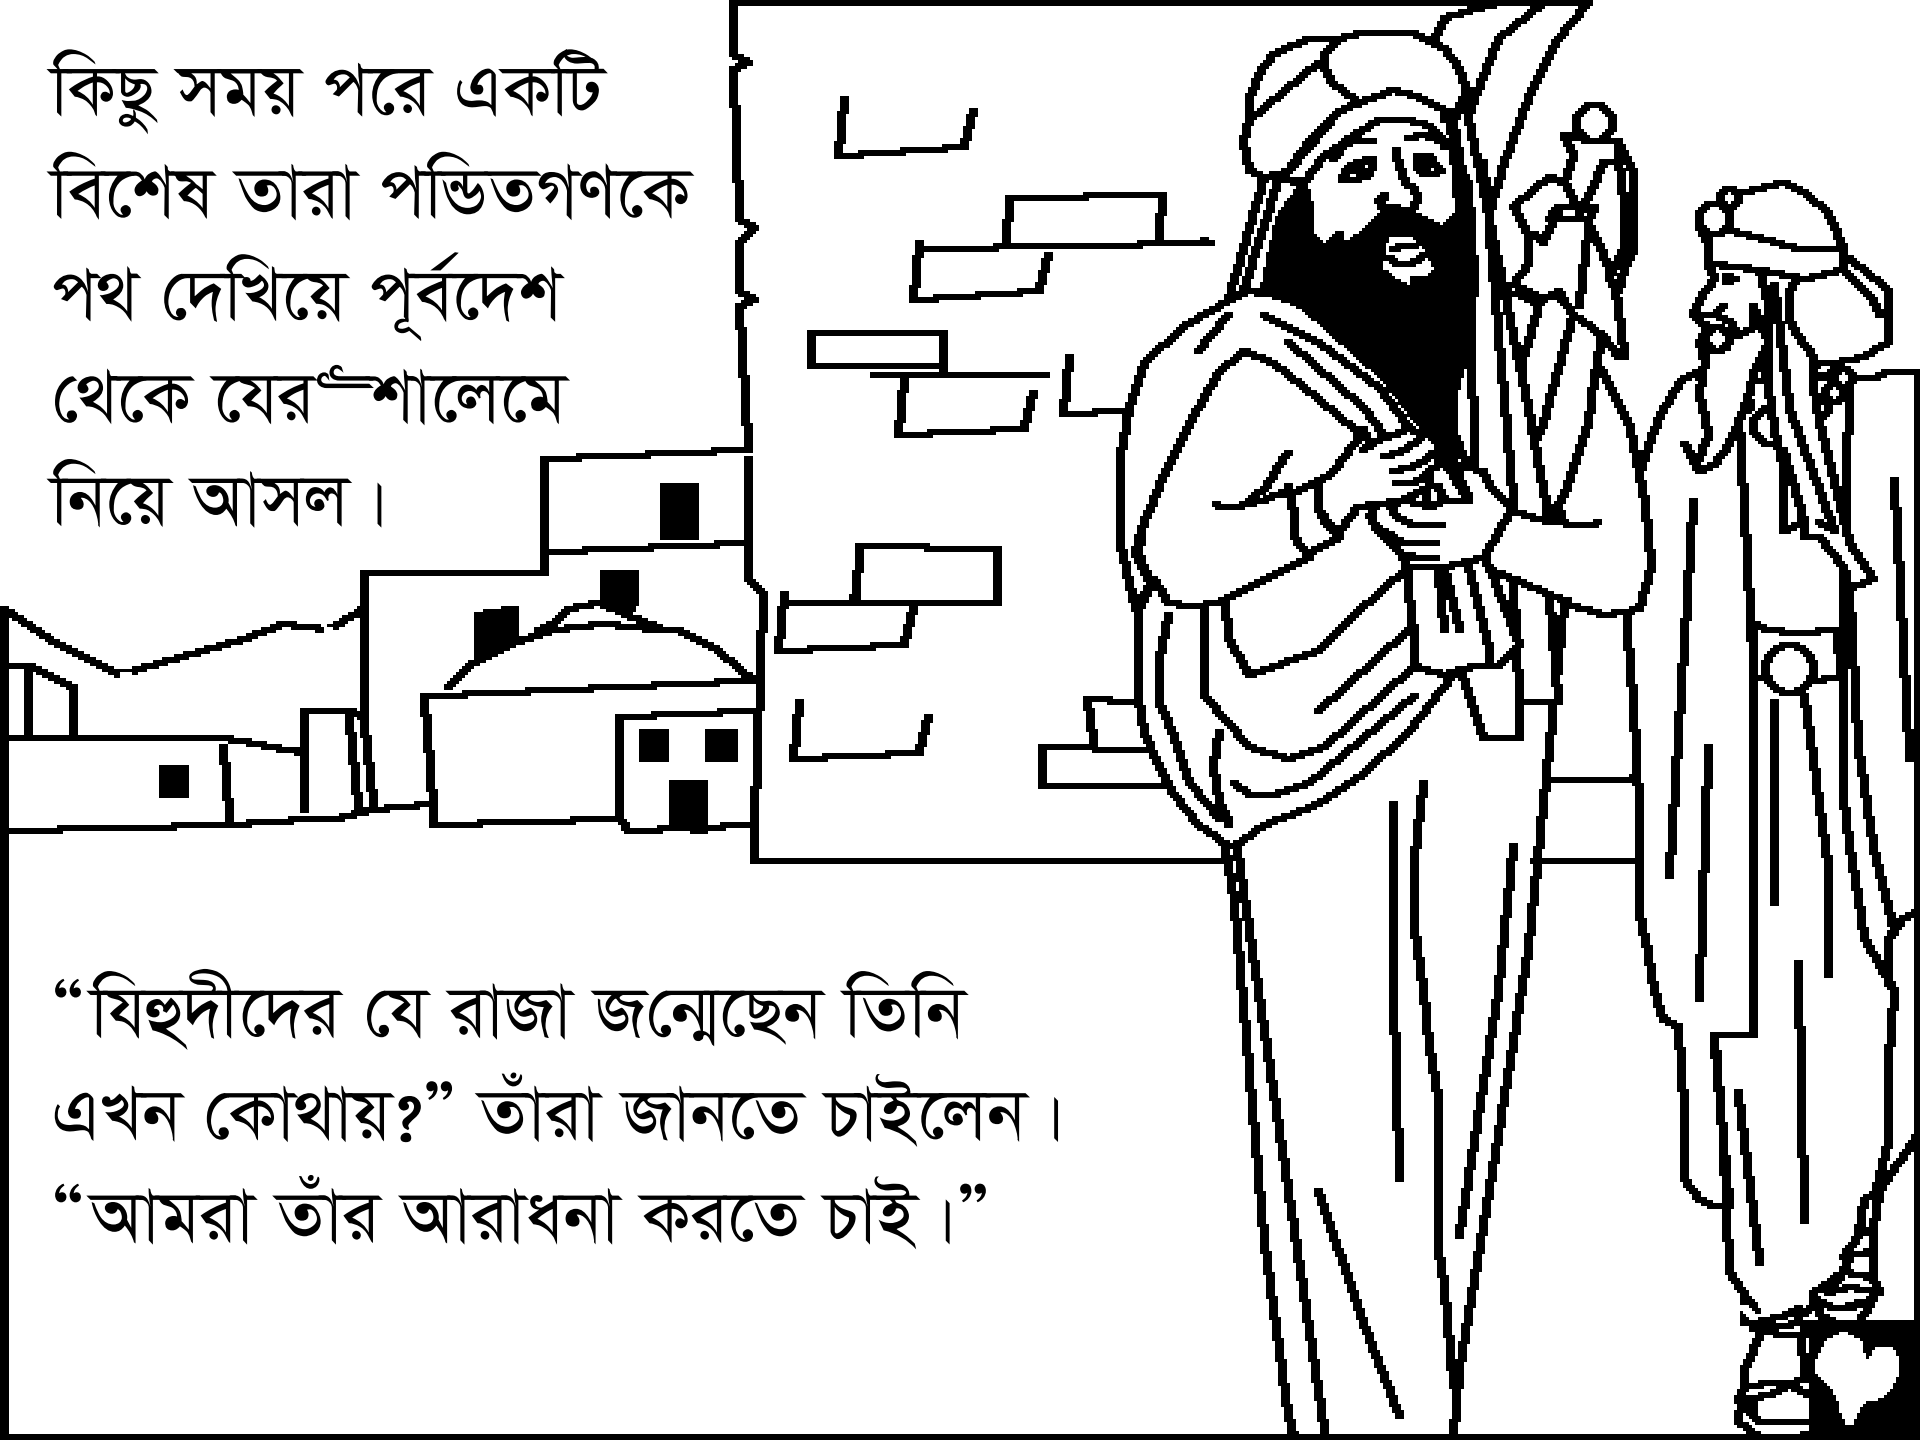 কিছু সময় পরে একটি
বিশেষ তারা পন্ডিতগণকে
পথ দেখিয়ে পূর্বদেশ
থেকে যেরূশালেমে
নিয়ে আসল।
“যিহুদীদের যে রাজা জন্মেছেন তিনি
এখন কোথায়?” তাঁরা জানতে চাইলেন।
“আমরা তাঁর আরাধনা করতে চাই।”